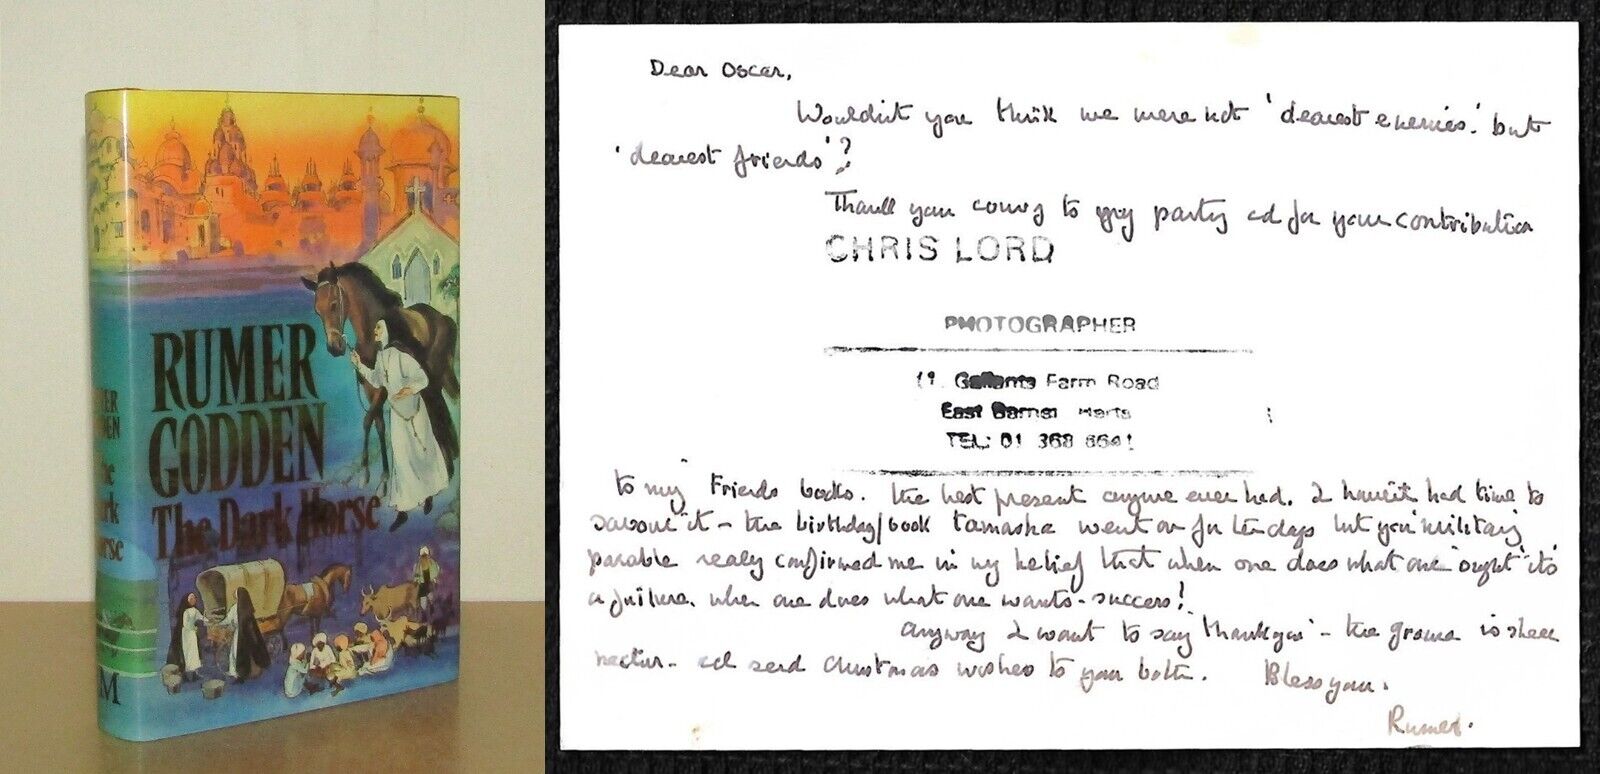 RUMER
GODDEN
The Dark Horse
M
Dear Oscar,
Wouldn't you think we were not 'dearest enemies' but
'dearest friends'?
Thank you coming to my party ad for your contribution
CHRIS LORD
PHOTOGRAPHER
Farm Road
East Barnet Herts
TEL: 01 368 6641
to my Friends books. The best present anyone ever had. I haven't had time to
savour it - the birthday/book tamasha went on for ten days but your military
parable really confirmed me in my belief that when one does what one 'ought' it's
a failure, when one does what one wants - success!
Anyway I want to say 'thank you' - the is sheer
nectar - ad send Christmas wishes to you both. Bless you.
Rumer.